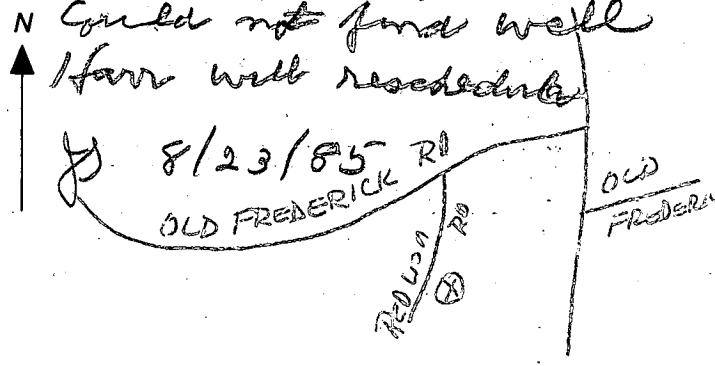 N Could not find well
Harr will reschedule
JS 8/23/85
OLD FREDERICK RD
OLD
FREDER
RD